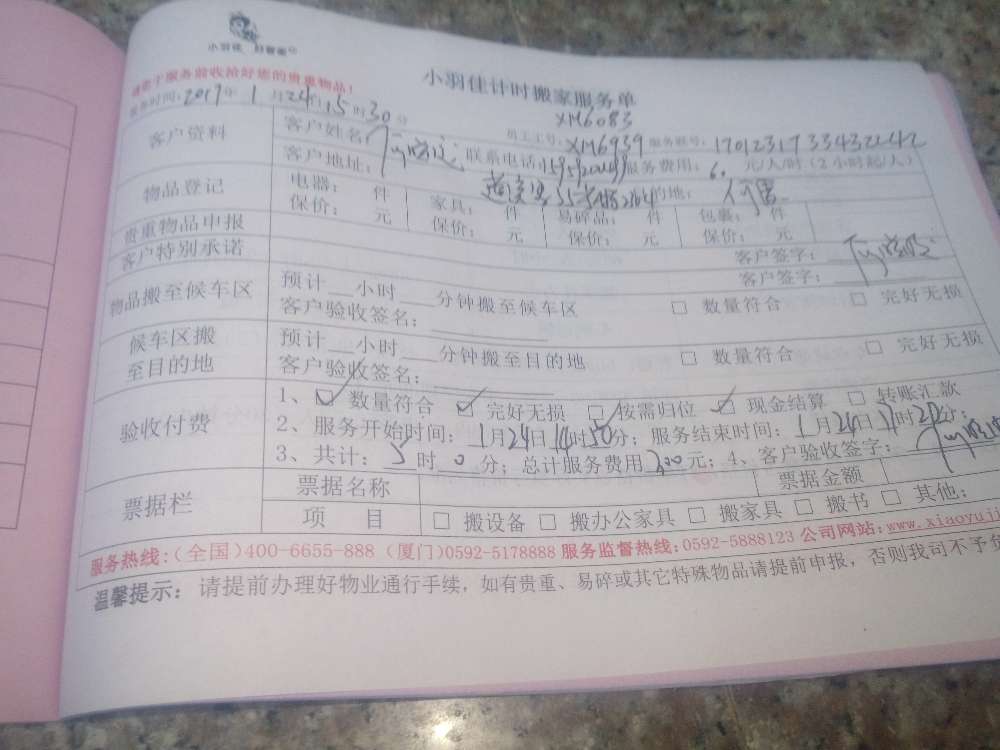 小羽佳 好管家
小羽佳计时搬家服务单
请您于服务前收拾好您的贵重物品!
服务时间: 2017年 1月24日 15时30分
XM6083
员工工号: XM6939 服务账号: 1701231733432242
客户资料
客户姓名:
联系电话:
服务费用: 60 元/人/时 (2小时起/人)
客户地址:
的地:
物品登记
电器: 件 家具: 件 易碎品: 件 包裹: 件
保价: 元 保价: 元 保价: 元 保价: 元
贵重物品申报 客户签字:
客户特别承诺 客户签字:
物品搬至候车区
预计 小时 分钟搬至候车区 □ 数量符合 □ 完好无损
客户验收签名:
候车区搬至目的地
预计 小时 分钟搬至目的地 □ 数量符合 □ 完好无损
客户验收签名:
验收付费
1、☑ 数量符合 ☑ 完好无损 ☑ 按需归位 ☑ 现金结算 □ 转账汇款
2、服务开始时间: 1月24日14时50分; 服务结束时间: 1月24日17时20分;
3、共计: 5时0分; 总计服务费用300元; 4、客户验收签字:
票据栏
票据名称 票据金额
项 目 □ 搬设备 □ 搬办公家具 □ 搬家具 □ 搬书 □ 其他:
服务热线:(全国)400-6655-888 (厦门)0592-5178888 服务监督热线:0592-5888123 公司网站:www.xiaoyuji
温馨提示: 请提前办理好物业通行手续, 如有贵重、易碎或其它特殊物品请提前申报, 否则我司不予